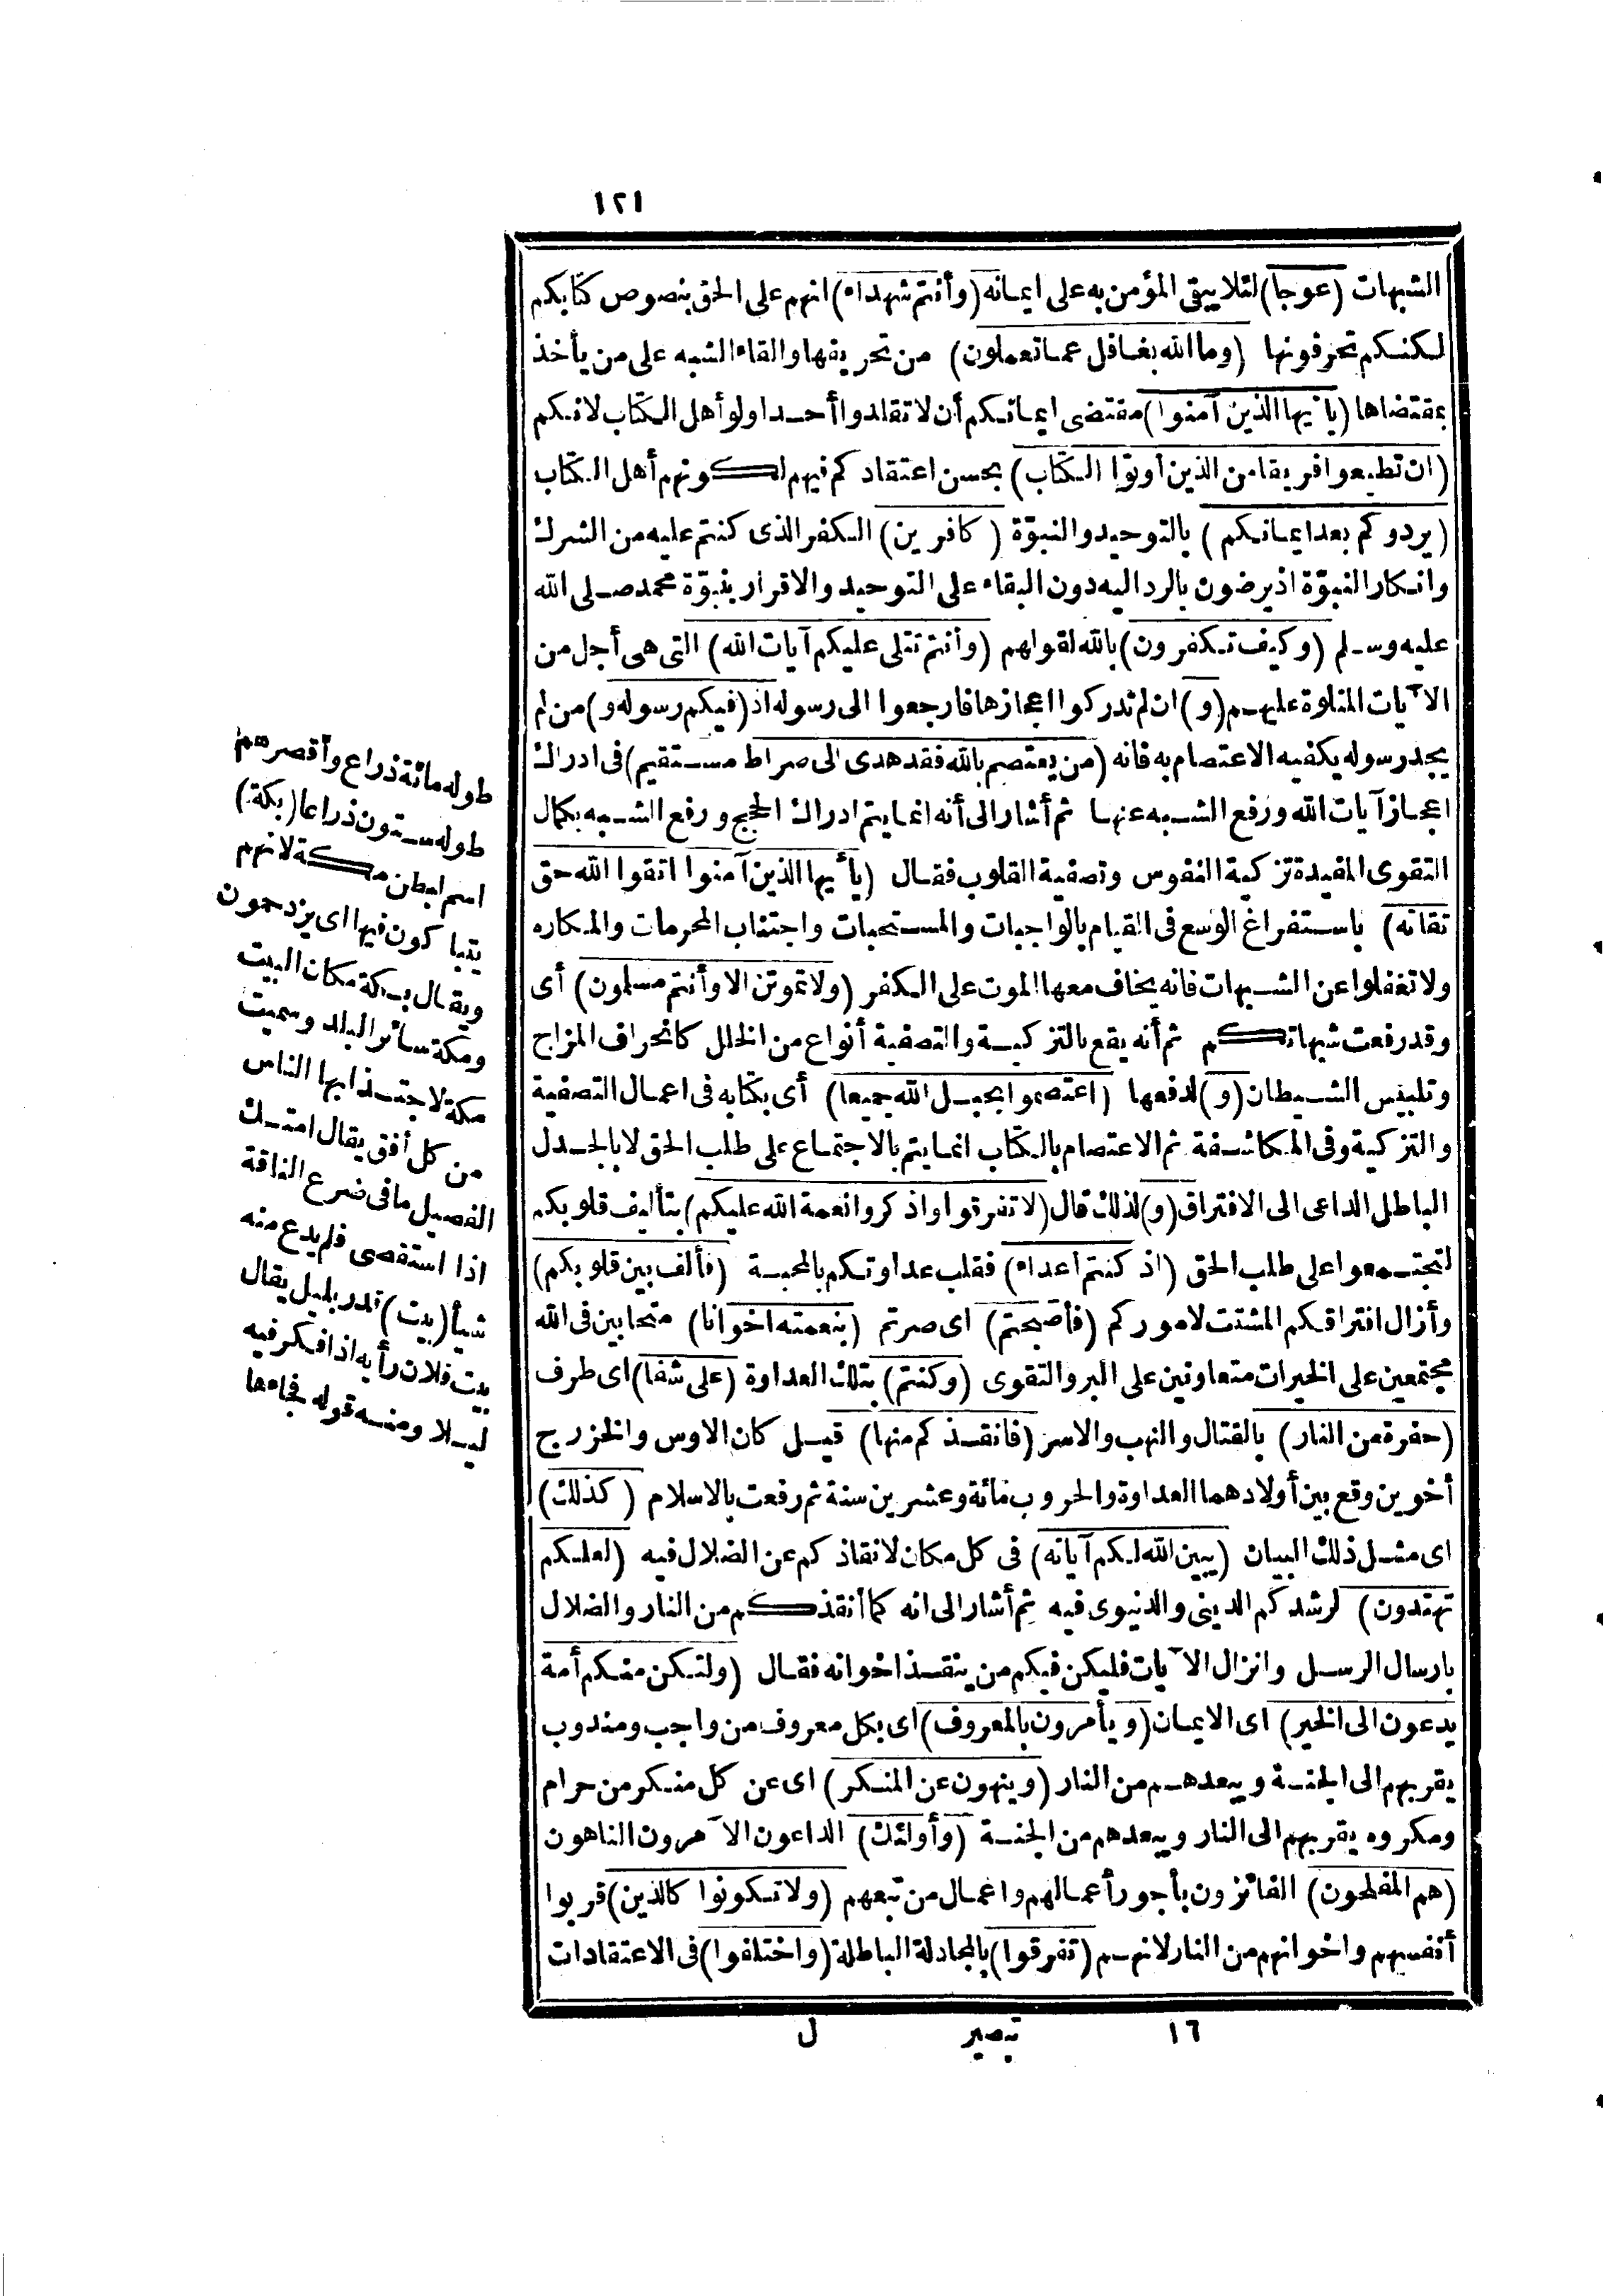 ١٢١
الشبهات (عوجا) لئلا يبقى المؤمن به على ايمانه (وأنتم شهداء) انهم على الحق بنصوص كتابكم
لكنكم تحرفونها (وما الله بغافل عما تعملون) من تحريفها والقاء الشبه على من يأخذ
بمقتضاها (يا أيها الذين آمنوا) مقتضى ايمانكم أن لا تقلدوا أحدا ولو أهل الكتاب لانكم
(ان تطيعوا فريقا من الذين أوتوا الكتاب) بحسن اعتقادكم فيهم لكونهم أهل الكتاب
(يردوكم بعد ايمانكم) بالتوحيد والنبوّة (كافرين) الكفر الذى كنتم عليه من الشرك
وانكار النبوّة اذ يرضون بالرد اليه دون البقاء على التوحيد والاقرار بنبوّة محمد صلى الله
عليه وسلم (وكيف تكفرون) بالله لقولهم (وأنتم تتلى عليكم آيات الله) التى هى أجل من
الآيات المتلوة عليهم (و) ان لم تدركوا اعجازها فارجعوا الى رسوله اذ (فيكم رسوله و) من لم
يجد رسوله يكفيه الاعتصام به فانه (من يعتصم بالله فقد هدى الى صراط مستقيم) فى ادراك
اعجاز آيات الله ورفع الشبه عنها ثم أشار الى أنه انما يتم ادراك الحجج ورفع الشبه بكمال
التقوى المفيدة تزكية النفوس وتصفية القلوب فقال (يا أيها الذين آمنوا اتقوا الله حق
تقاته) باستفراغ الوسع فى القيام بالواجبات والمستحبات واجتناب المحرمات والمكاره
ولا تغفلوا عن الشبهات فانه يخاف معها الموت على الكفر (ولا تموتن الا وأنتم مسلمون) أى
وقد رفعت شبهاتكم ثم أنه يقع بالتزكية والتصفية أنواع من الخلل كانحراف المزاج
وتلبيس الشيطان (و) لدفعها (اعتصموا بحبل الله جميعا) أى بكتابه فى اعمال التصفية
والتزكية وفى المكاشفة ثم الاعتصام بالكتاب انما يتم بالاجتماع على طلب الحق لا بالجدل
الباطل الداعى الى الافتراق (و) لذلك قال (لا تفرقوا واذكروا نعمة الله عليكم) بتأليف قلوبكم
لتجتمعوا على طلب الحق (اذ كنتم أعداء) فقلب عداوتكم بالمحبة (فألف بين قلوبكم)
وأزال افتراقكم المشتت لاموركم (فأصبحتم) اى صرتم (بنعمته اخوانا) متحابين فى الله
مجتمعين على الخيرات متعاونين على البر والتقوى (وكنتم) بتلك العداوة (على شفا) اى طرف
(حفرة من النار) بالقتال والنهب والاسر (فانقذكم منها) قيل كان الاوس والخزرج
أخوين وقع بين أولادهما العداوة والحروب مائة وعشرين سنة ثم رفعت بالاسلام (كذلك)
اى مثل ذلك البيان (يبين الله لكم آياته) فى كل مكان لانقاذكم عن الضلال فيه (لعلكم
تهتدون) لرشدكم الدينى والدنيوى فيه ثم أشار الى انه كما أنقذكم من النار والضلال
بارسال الرسل وانزال الآيات فليكن فيكم من ينقذ اخوانه فقال (ولتكن منكم أمة
يدعون الى الخير) اى الايمان (ويأمرون بالمعروف) اى بكل معروف من واجب ومندوب
يقربهم الى الجنة ويبعدهم من النار (وينهون عن المنكر) اى عن كل منكر من حرام
ومكروه يقربهم الى النار ويبعدهم من الجنة (وأولئك) الداعون الآمرون الناهون
(هم المفلحون) الفائزون بأجور أعمالهم واعمال من تبعهم (ولا تكونوا كالذين) قربوا
أنفسهم واخوانهم من النار لانهم (تفرقوا) بالمجادلة الباطلة (واختلفوا) فى الاعتقادات
١٦ تبصير ل
طوله مائة ذراع وأقصرهم
طوله ستون ذراعا (بكة)
اسم لبطن مكة لانهم
يتباكون فيها اى يزدحمون
ويقال بكة مكان البيت
ومكة سائر البلد وسميت
مكة لاجتذابها الناس
من كل أفق يقال امتك
الفصيل ما فى ضرع الناقة
اذا استقصى فلم يدع منه
شيأ (بيت) قدر بليل يقال
بيت فلان رأيه اذا فكر فيه
ليلا ومنه قوله فجاءها